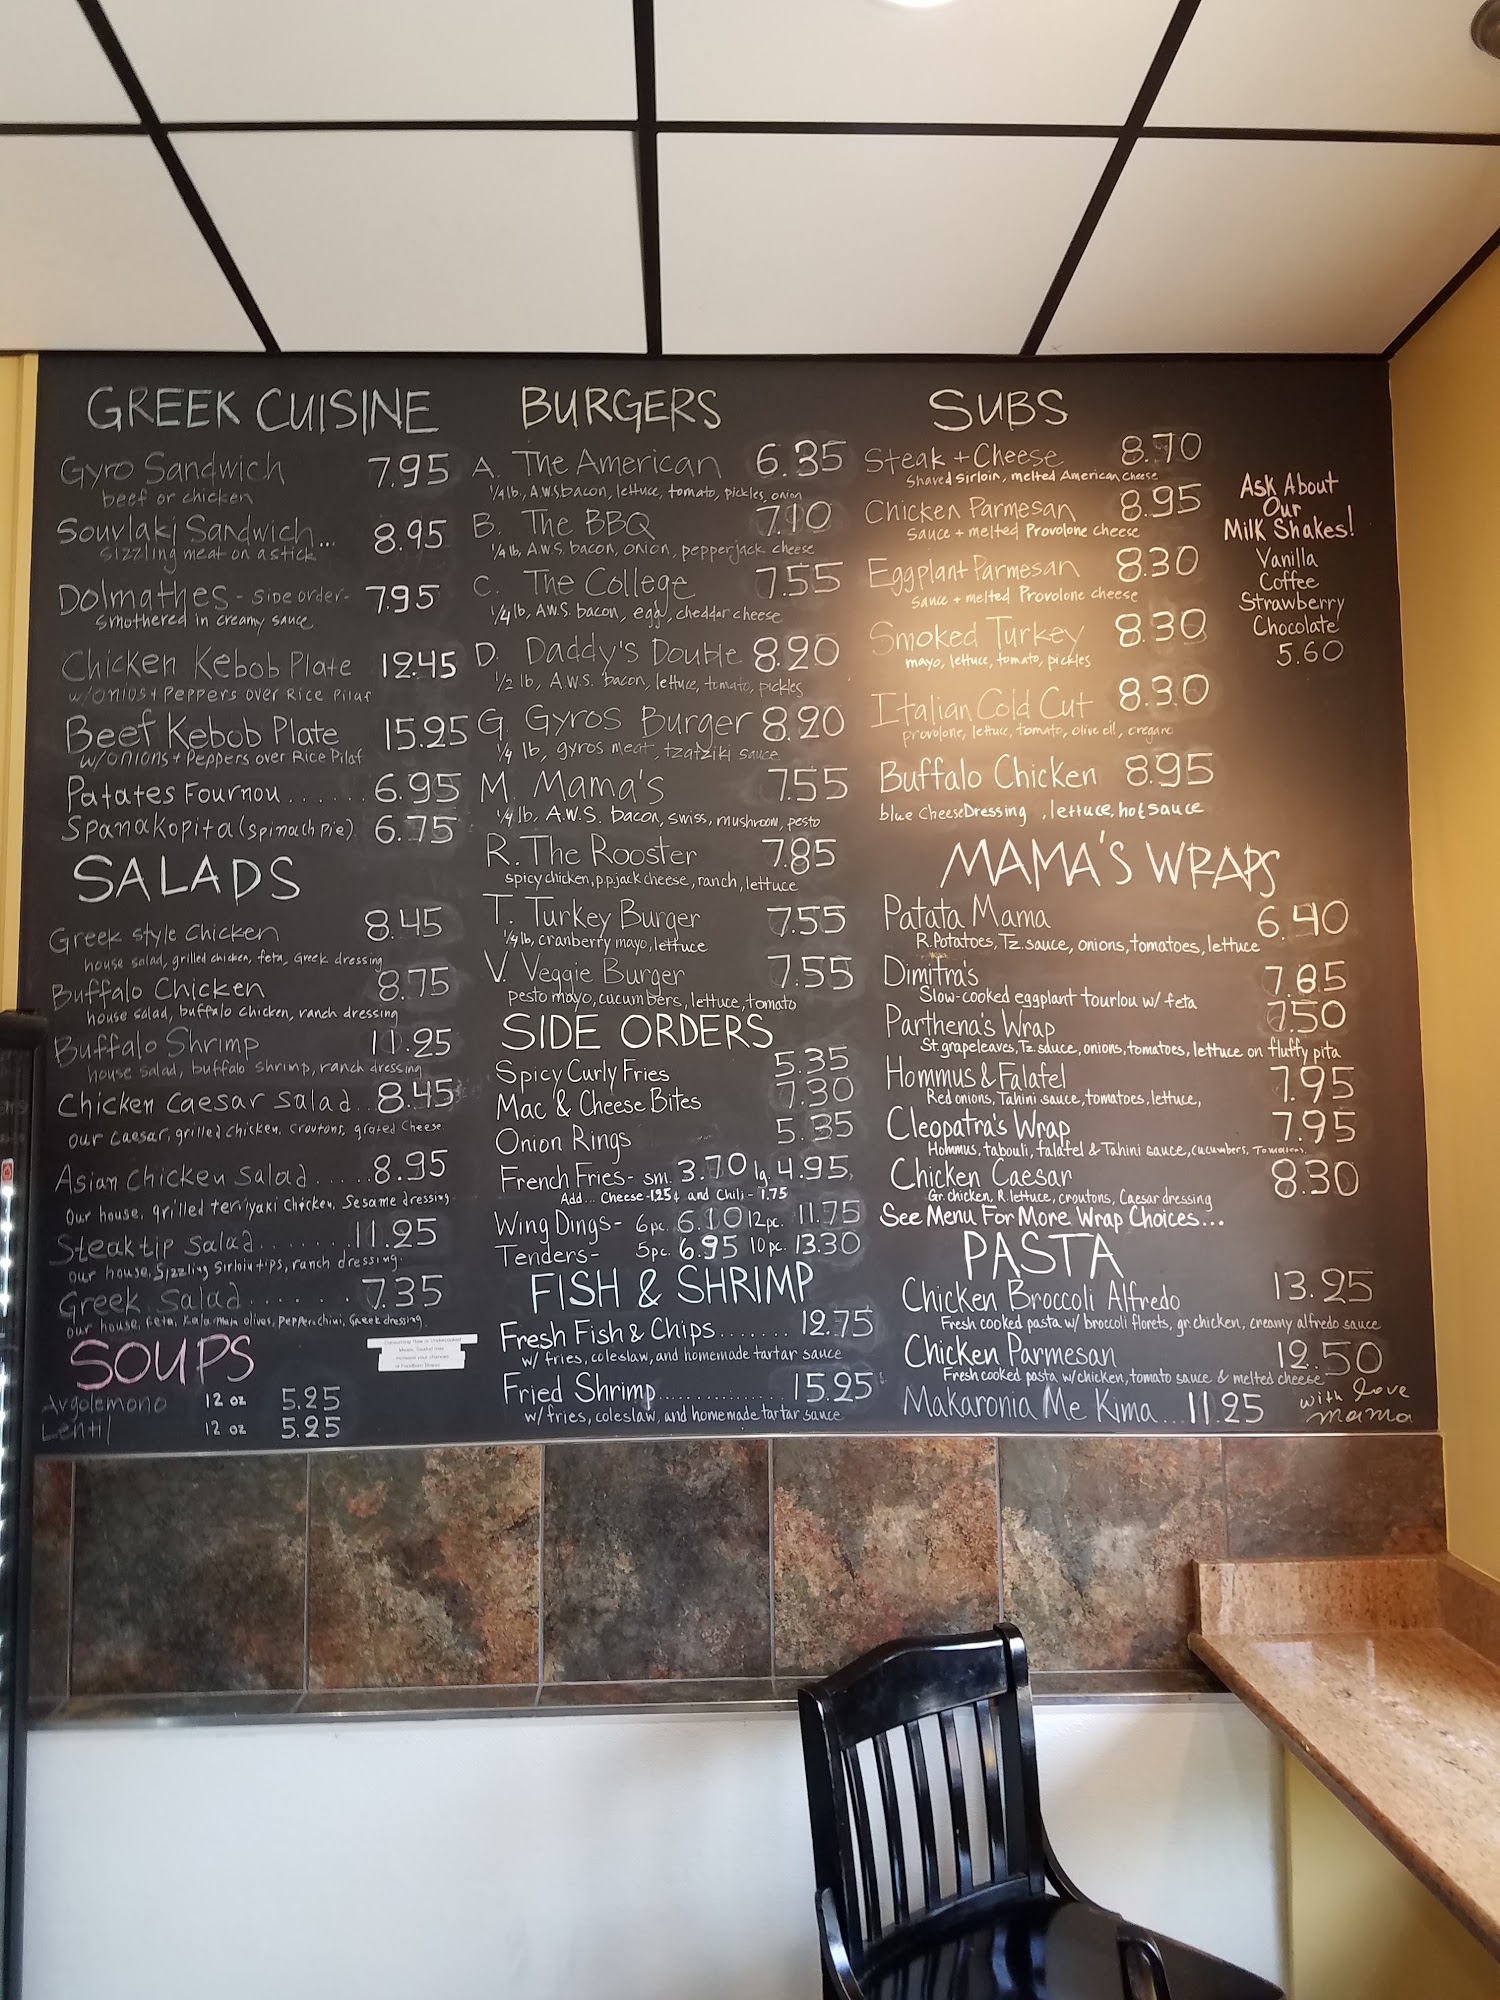 GREEK CUISINE
Gyro Sandwich 7.95
beef or chicken
Souvlaki Sandwich... 8.95
Sizzling meat on a stick
Dolmathes - Side order- 7.95
smothered in creamy sauce
Chicken Kebob Plate 12.45
w/onios + Peppers over Rice Pilaf
Beef Kebob Plate 15.25
w/onions + Peppers over Rice Pilaf
Patates Fournou....... 6.95
Spanakopita (spinach pie) 6.75
SALADS
Greek style Chicken 8.45
house salad, grilled chicken, feta, Greek dressing
Buffalo Chicken 8.75
house salad, buffalo chicken, ranch dressing
Buffalo Shrimp 11.25
house salad, buffalo shrimp, ranch dressing
Chicken Caesar Salad.. 8.45
our caesar, grilled chicken, croutons, grated cheese
Asian Chicken Salad..... 8.95
Our house, grilled teriyaki Chicken, Sesame dressing.
Steak tip Salad....... 11.25
our house, Sizzling Sirloin tips, ranch dressing.
Greek Salad....... 7.35
our house, feta, Kalamata olives, Pepperchini, Greek dressing.
SOUPS
Avgolemono 12 oz 5.25
Lentil 12 oz 5.25
Consuming Raw or Undercooked
Meats, Seafood may
increase your chances
of Foodborn Illness
BURGERS
A. The American 6.35
1/4 lb., A.W.S bacon, lettuce, tomato, pickles, onion
B. The BBQ 7.10
1/4 lb, A.W.S. bacon, onion, pepperjack cheese
C. The College 7.55
1/4 lb, A.W.S. bacon, egg, cheddar cheese
D. Daddy's Double 8.20
1/2 lb, A.W.S. bacon, lettuce, tomato, pickles
G. Gyros Burger 8.20
1/4 lb, gyros meat, tzatziki sauce
M. Mama's 7.55
1/4 lb, A.W.S. bacon, swiss, mushroom, pesto
R. The Rooster 7.85
spicy chicken, p.p.jack cheese, ranch, lettuce
T. Turkey Burger 7.55
1/4 lb, cranberry mayo, lettuce
V. Veggie Burger 7.55
pesto mayo, cucumbers, lettuce, tomato
SIDE ORDERS
Spicy Curly Fries 5.35
Mac & Cheese Bites 7.30
Onion Rings 5.35
French Fries- sm. 3.70 lg. 4.95
Add... Cheese -1.25¢ and Chili - 1.75
Wing Dings- 6pc. 6.10 12pc. 11.75
Tenders- 5pc. 6.95 10pc. 13.30
FISH & SHRIMP
Fresh Fish & Chips....... 12.75
w/ fries, coleslaw, and homemade tartar sauce
Fried Shrimp............. 15.25
w/ fries, coleslaw, and homemade tartar sauce
SUBS
Steak + Cheese 8.70
Shaved Sirloin, melted American cheese
Chicken Parmesan 8.95
Sauce + melted Provolone cheese
Eggplant Parmesan 8.30
sauce + melted Provolone cheese
Smoked Turkey 8.30
mayo, lettuce, tomato, pickles
Italian Cold Cut 8.30
provolone, lettuce, tomato, olive oil, oregano
Buffalo Chicken 8.95
blue Cheese Dressing, lettuce, hot sauce
Ask About
Our
Milk Shakes!
Vanilla
Coffee
Strawberry
Chocolate
5.60
MAMA'S WRAPS
Patata Mama 6.40
R. Potatoes, Tz. sauce, onions, tomatoes, lettuce
Dimitra's 7.85
Slow-cooked eggplant tourlou w/ feta
Parthena's Wrap 7.50
St. grapeleaves, Tz. sauce, onions, tomatoes, lettuce on fluffy pita
Hommus & Falafel 7.95
Red onions, Tahini sauce, tomatoes, lettuce,
Cleopatra's Wrap 7.95
Hommus, tabouli, falafel & Tahini sauce, cucumbers, Tomatoes.
Chicken Caesar 8.30
Gr. chicken, R. lettuce, croutons, Caesar dressing
See Menu For More Wrap Choices...
PASTA
Chicken Broccoli Alfredo 13.25
Fresh cooked pasta w/ broccoli florets, gr. chicken, creamy alfredo sauce
Chicken Parmesan 12.50
Fresh cooked pasta w/chicken, tomato sauce & melted cheese
Makaronia Me Kima... 11.25
with love
mama